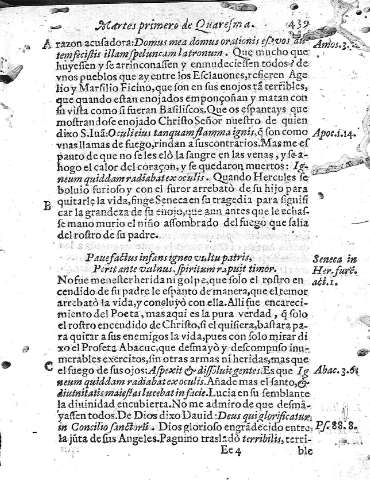 Martes primero de Quaresma. 439
A razon acusadora: Domus mea domus orationis est, vos
fecistis illam speluncam latronum. Que mucho que Amos.3.
huyessen y se arrinconassen y enmudeciessen todos? de
vnos pueblos que ay entre los Esclauones, refieren Age
lio y Marsilio Ficino, que son en sus enojos tã terribles,
que quando estan enojados emponçoñan y matan con
su vista como si fueran Basiliscos. Que os espantays que
mostrandose enojado Christo Señor nuestro de quien
dixo S. Iuã: Oculi eius tanquam flamma ignis, q̃ son como Apoc.1.14.
vnas llamas de fuego, rindan a sus contrarios. Mas me es
panto de que no se les elò la sangre en las venas, y se a-
hogo el calor del coraçon, y se quedaron muertos: Ig
neum quiddam radiabat ex oculis. Quando Hercules se
boluio furioso y con el furor arrebatò de su hijo para
B quitarle la vida, finge Seneca en su tragedia para signifi
car la grandeza de su enojo, que aun antes que le echas-
se mano murio el niño assombrado del fuego que salia
del rostro de su padre.
Pauefactus infans igneo vultu patris, Seneca in
Perit ante vulnus, spiritum rapuit timor. Her. fur.
act.1.
No fue menester herida ni golpe, que solo el rostro en
cendido de su padre le espanto de manera, que el temor
arrebatò la vida, y concluyò con ella. Alli fue encareci-
miento del Poeta, mas aqui es la pura verdad, q̃ solo
el rostro encendido de Christo, si el quisiera, bastara pa-
ra quitar a sus enemigos la vida, pues con solo mirar di
xo el Profeta Abacuc, que desmayò y descompuso in-
numerables exercitos, sin otras armas ni heridas, mas que
C el fuego de sus ojos: Aspexit & dissoluit gentes. Es que Ig Abac.3.6.
neum quiddam radiabat ex oculis. Añade mas el santo, &
diuinitatis maiestas lucebat in facie. Lucia en su semblante
la diuinidad encubierta. No me admiro de que desma-
yassen todos. De Dios dixo Dauid: Deus qui glorificatur
in Concilio sanctorũ. Dios glorioso engrãdecido entre Ps.88.8.
la jũta de sus Angeles. Pagnino trasladò terribilis, terri-
Ee 4 ble